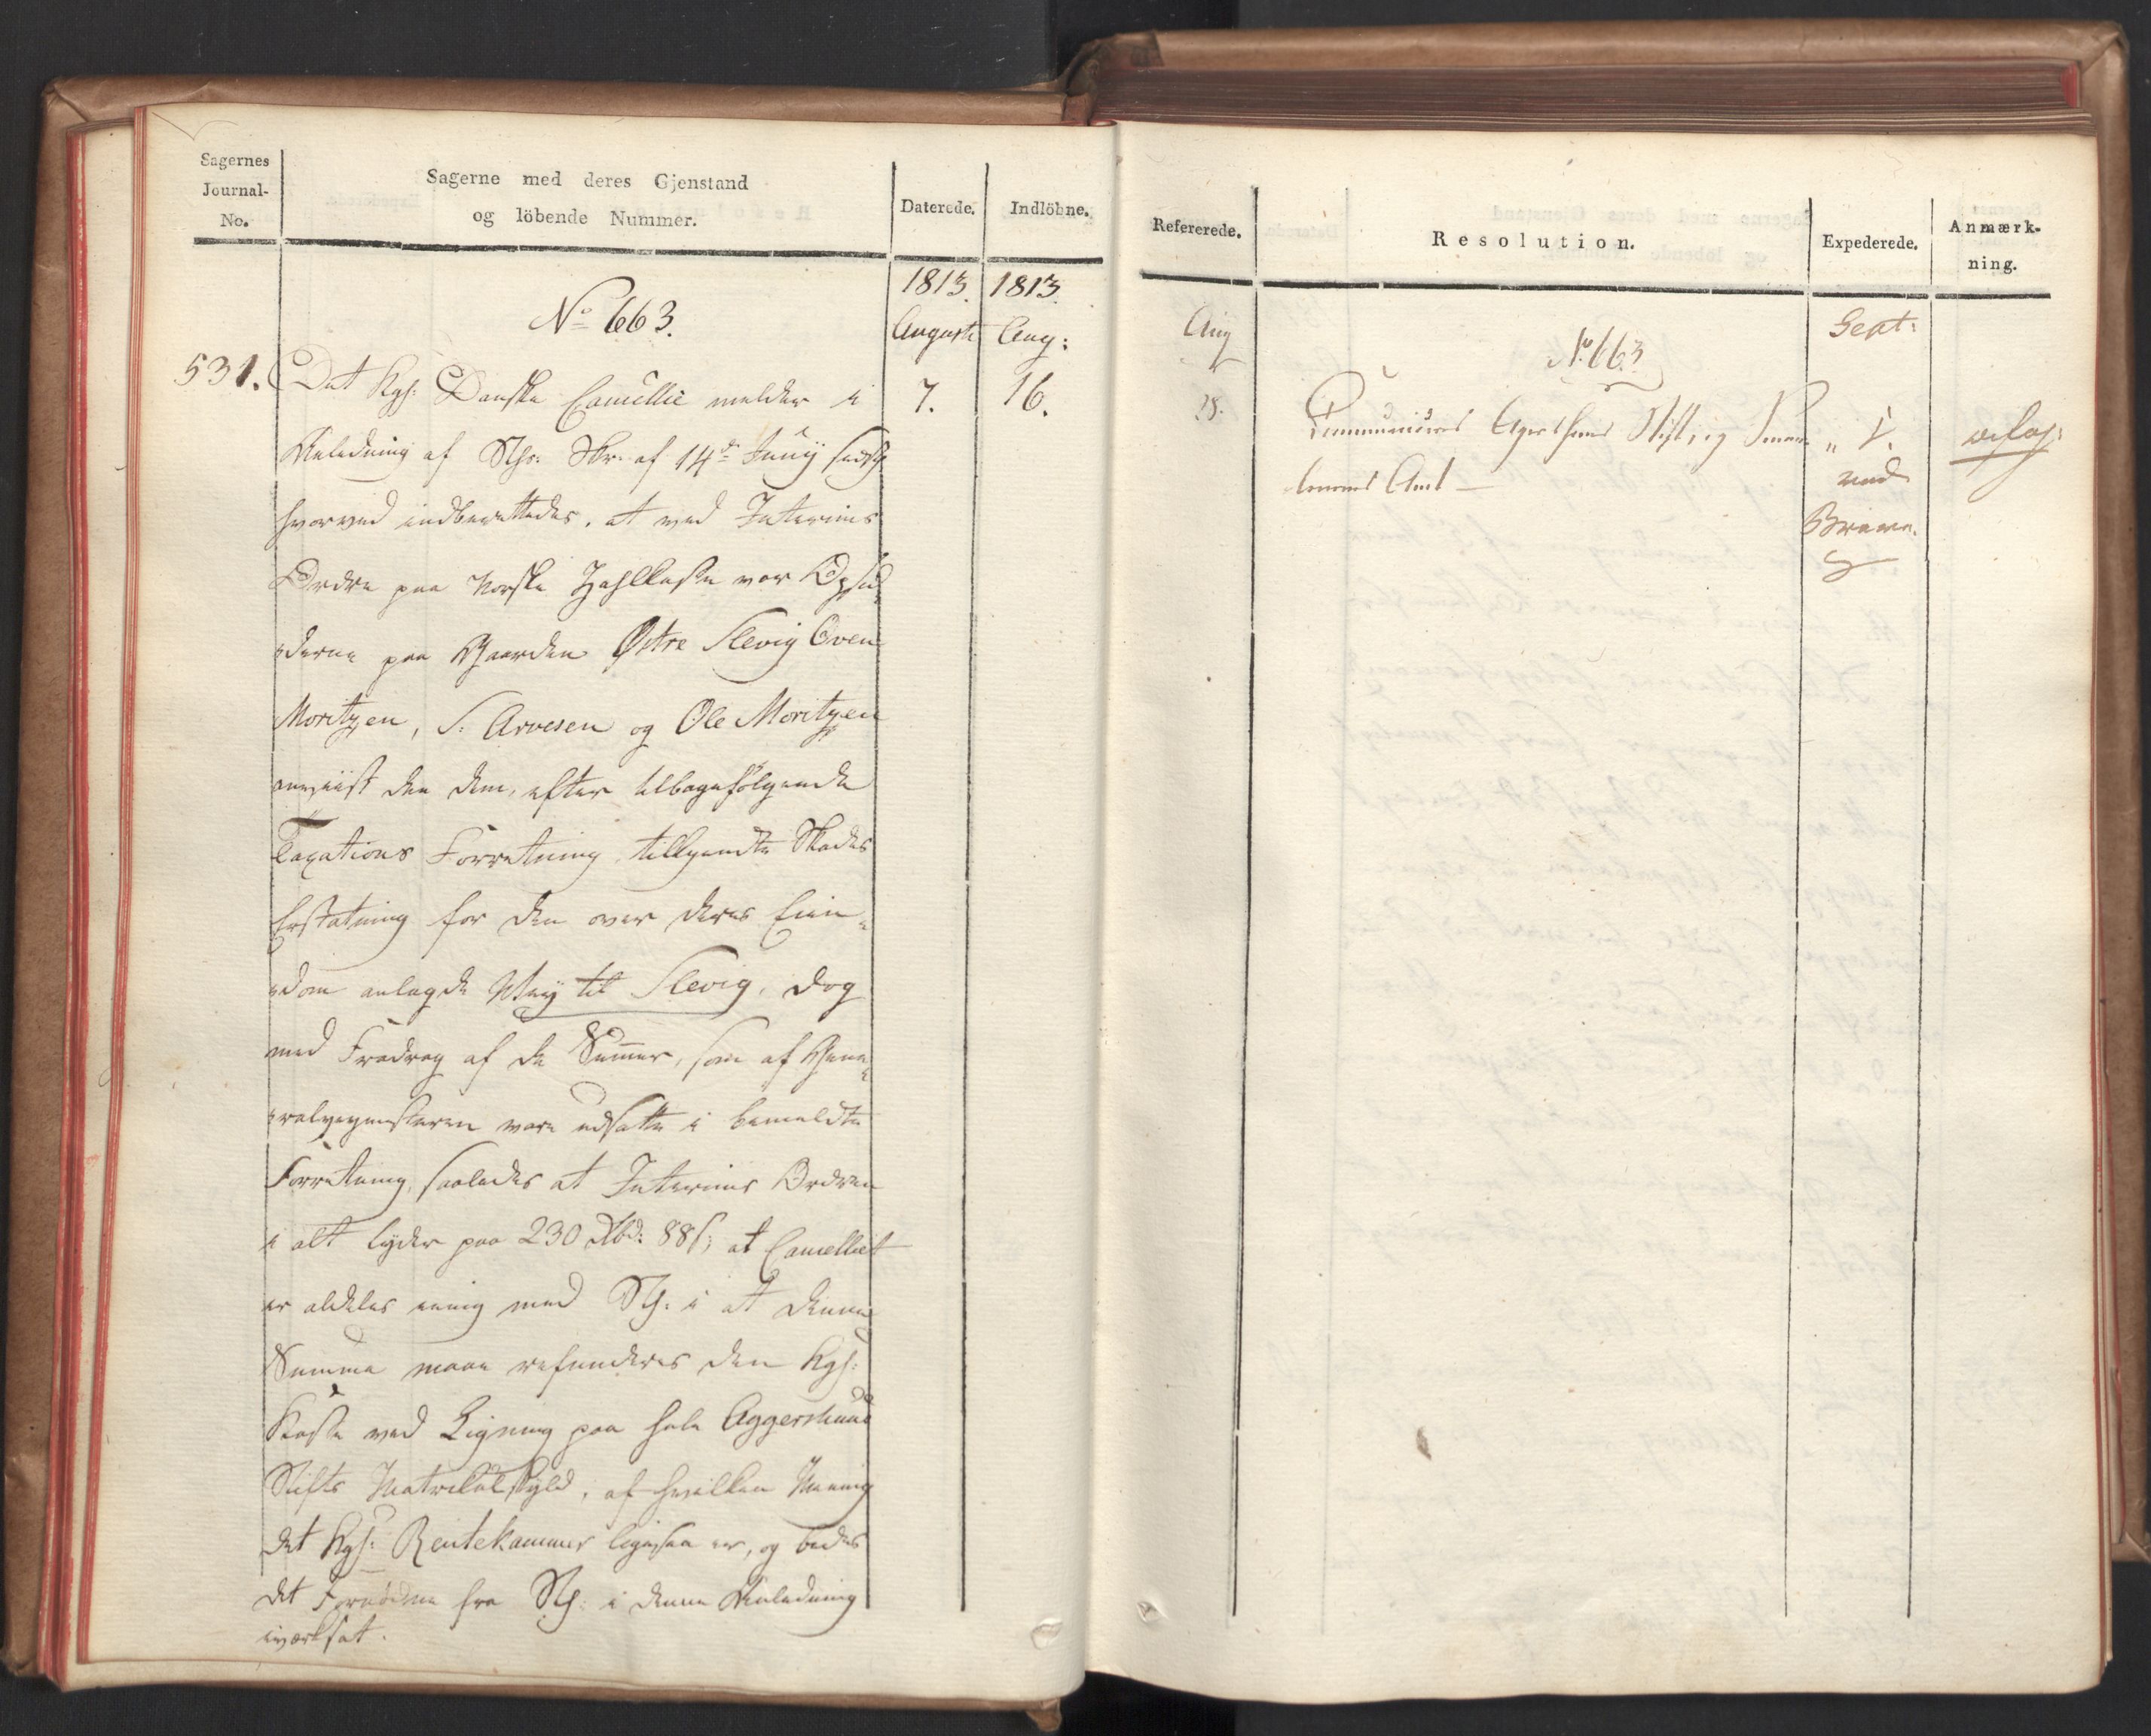 Sagernes
Journal-
No.
Sagerne med deres Gjenstand
og löbende Nummer.
Daterede.
Indlöbne.
1813. 1813.
No 663.
Augusti Aug:
531. Det Kgl: Danske Cancellie melder i 7. 16.
Anledning af Skr: af 14de Junij
hvorved indberettedes, at ved Interims
Ordre paa Norske Zahlkasse var Opsid¸
¸derne paa Gaarden Østre Slevig Even
Moritzen, S: Arvesen og Ole Moritzen
anviist den dem, efter tilbagefølgende
Taxations Forretning, tillkjendte Skades
Erstatning for den over deres Eien¸
¸dom anlagde Vej til Slevig, dog
med Fradrag af de Summer, som af Gene¸
¸ralvejmesteren vare udsatte i bemeldte
Forretning, saaledes at Interims Ordren
i alt lyder paa 230 Rbd: 88 s; at Cancelliet
er aldeles enig med i at denne
Summa maae refunderes den Kgl:
Kasse ved Ligning paa hele Aggershuus
Stifts Matrikulskyld, af hvilken Mening
det Kgl: Rentekammer ligesaa er, og bedes
det Fornödne fra i denne Anledning
iværksat.
Refererede.
Resolution.
Expederede.
Anmærk-
ning.
Aug
Sept:
No 663
28. Communiceres Agershuus Stift, og Smaa¸ " 1.
lenenes Amt —
ved
Breve.